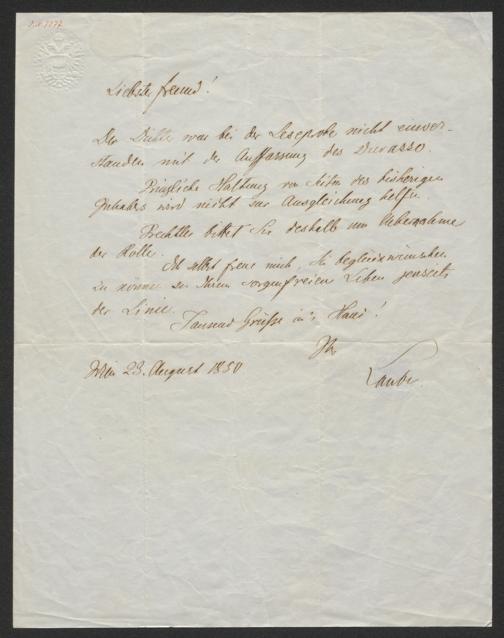 Liebster Freund!
Der Dichter war bei der Leseprobe nicht einver-
standen mit der Auffassung des Durasso.
Prinzliche Haltung von Seiten des bisherigen
Inhabers wird nicht zur Ausgleichung helfen.
Prechtler bittet Sie deshalb um Uebernahme
der Rolle.
Ich selbst freue mich, Sie beglückwünschen
zu können zu Ihrem sorgenfreien Leben jenseits
der Linie.
Tausend Grüße in's Haus!
Ihr
Laube
Wien 23. August 1850